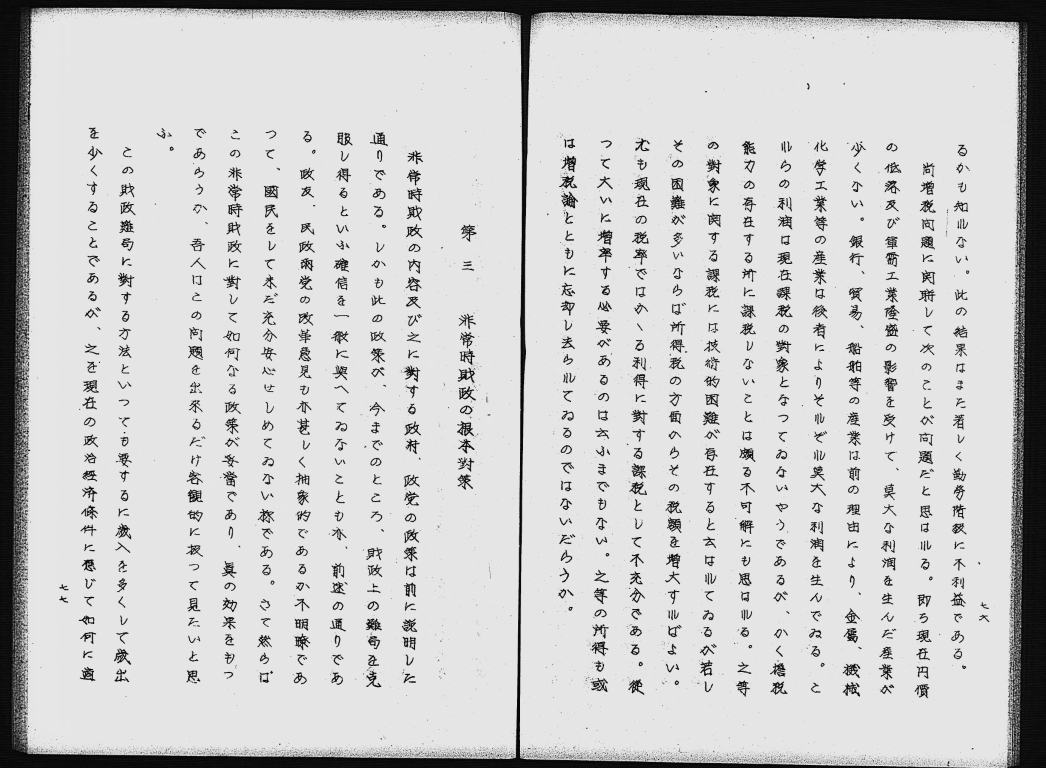 るかも知れない。此の結果はまた著しく勤勞階級に不利益である。
尚增税問題に関聯して次のことが问題だと思はれる。即ち現在円價
の低落及び軍需工業隆盛の影響を受けて、莫大な利潤を生んだ産業が
少くない。銀行、貿易、船舶等の産業は前の理由により、金属、機械
化学工業等の産業は後者によりそれぞれ莫大な利潤を生んでゐる。こ
れらの利潤は現在課税の對象となつてゐないやうであるが、かく擔税
能力の存在する所に課税しないことは頗る不可解にも思はれる。之等
の對象に関する課税には技術的困難が存在すると云はれてゐるが若し
その困難が多いならば所得税の方面からその税額を増大すればよい。
尤も現在の税率ではかゝる利得に對する課税として不充分である。從
つて大いに增率する必要があるのは云ふまでもない。之等の所得も或
は增税論とともに忘却し去られてゐるのではないだらうか。
七六
第三 非常時財政の根本對策
非常時財政の内容及び之に對する政府、政党の政策は前に説明した
通りである。しかも此の政策が、今までのところ、財政上の難局を克
服し得るといふ確信を一般に與へてゐないことも亦、前述の通りであ
る。政友、民政両党の政革意見も亦甚しく抽象的であるか不明瞭であ
つて、國民をして未だ充分安心せしめてゐない様である。さて然らば
この非常時財政に對して如何なる政策が妥當であり、眞の効果をもつ
であらうか、吾人はこの问題を出来るだけ客観的に扱つて見たいと思
ふ。
この財政難局に對する方法といつても要するに歳入を多くして歳出
を少くすることであるが、之を現在の政治経済條件に應じて如何に適
七七